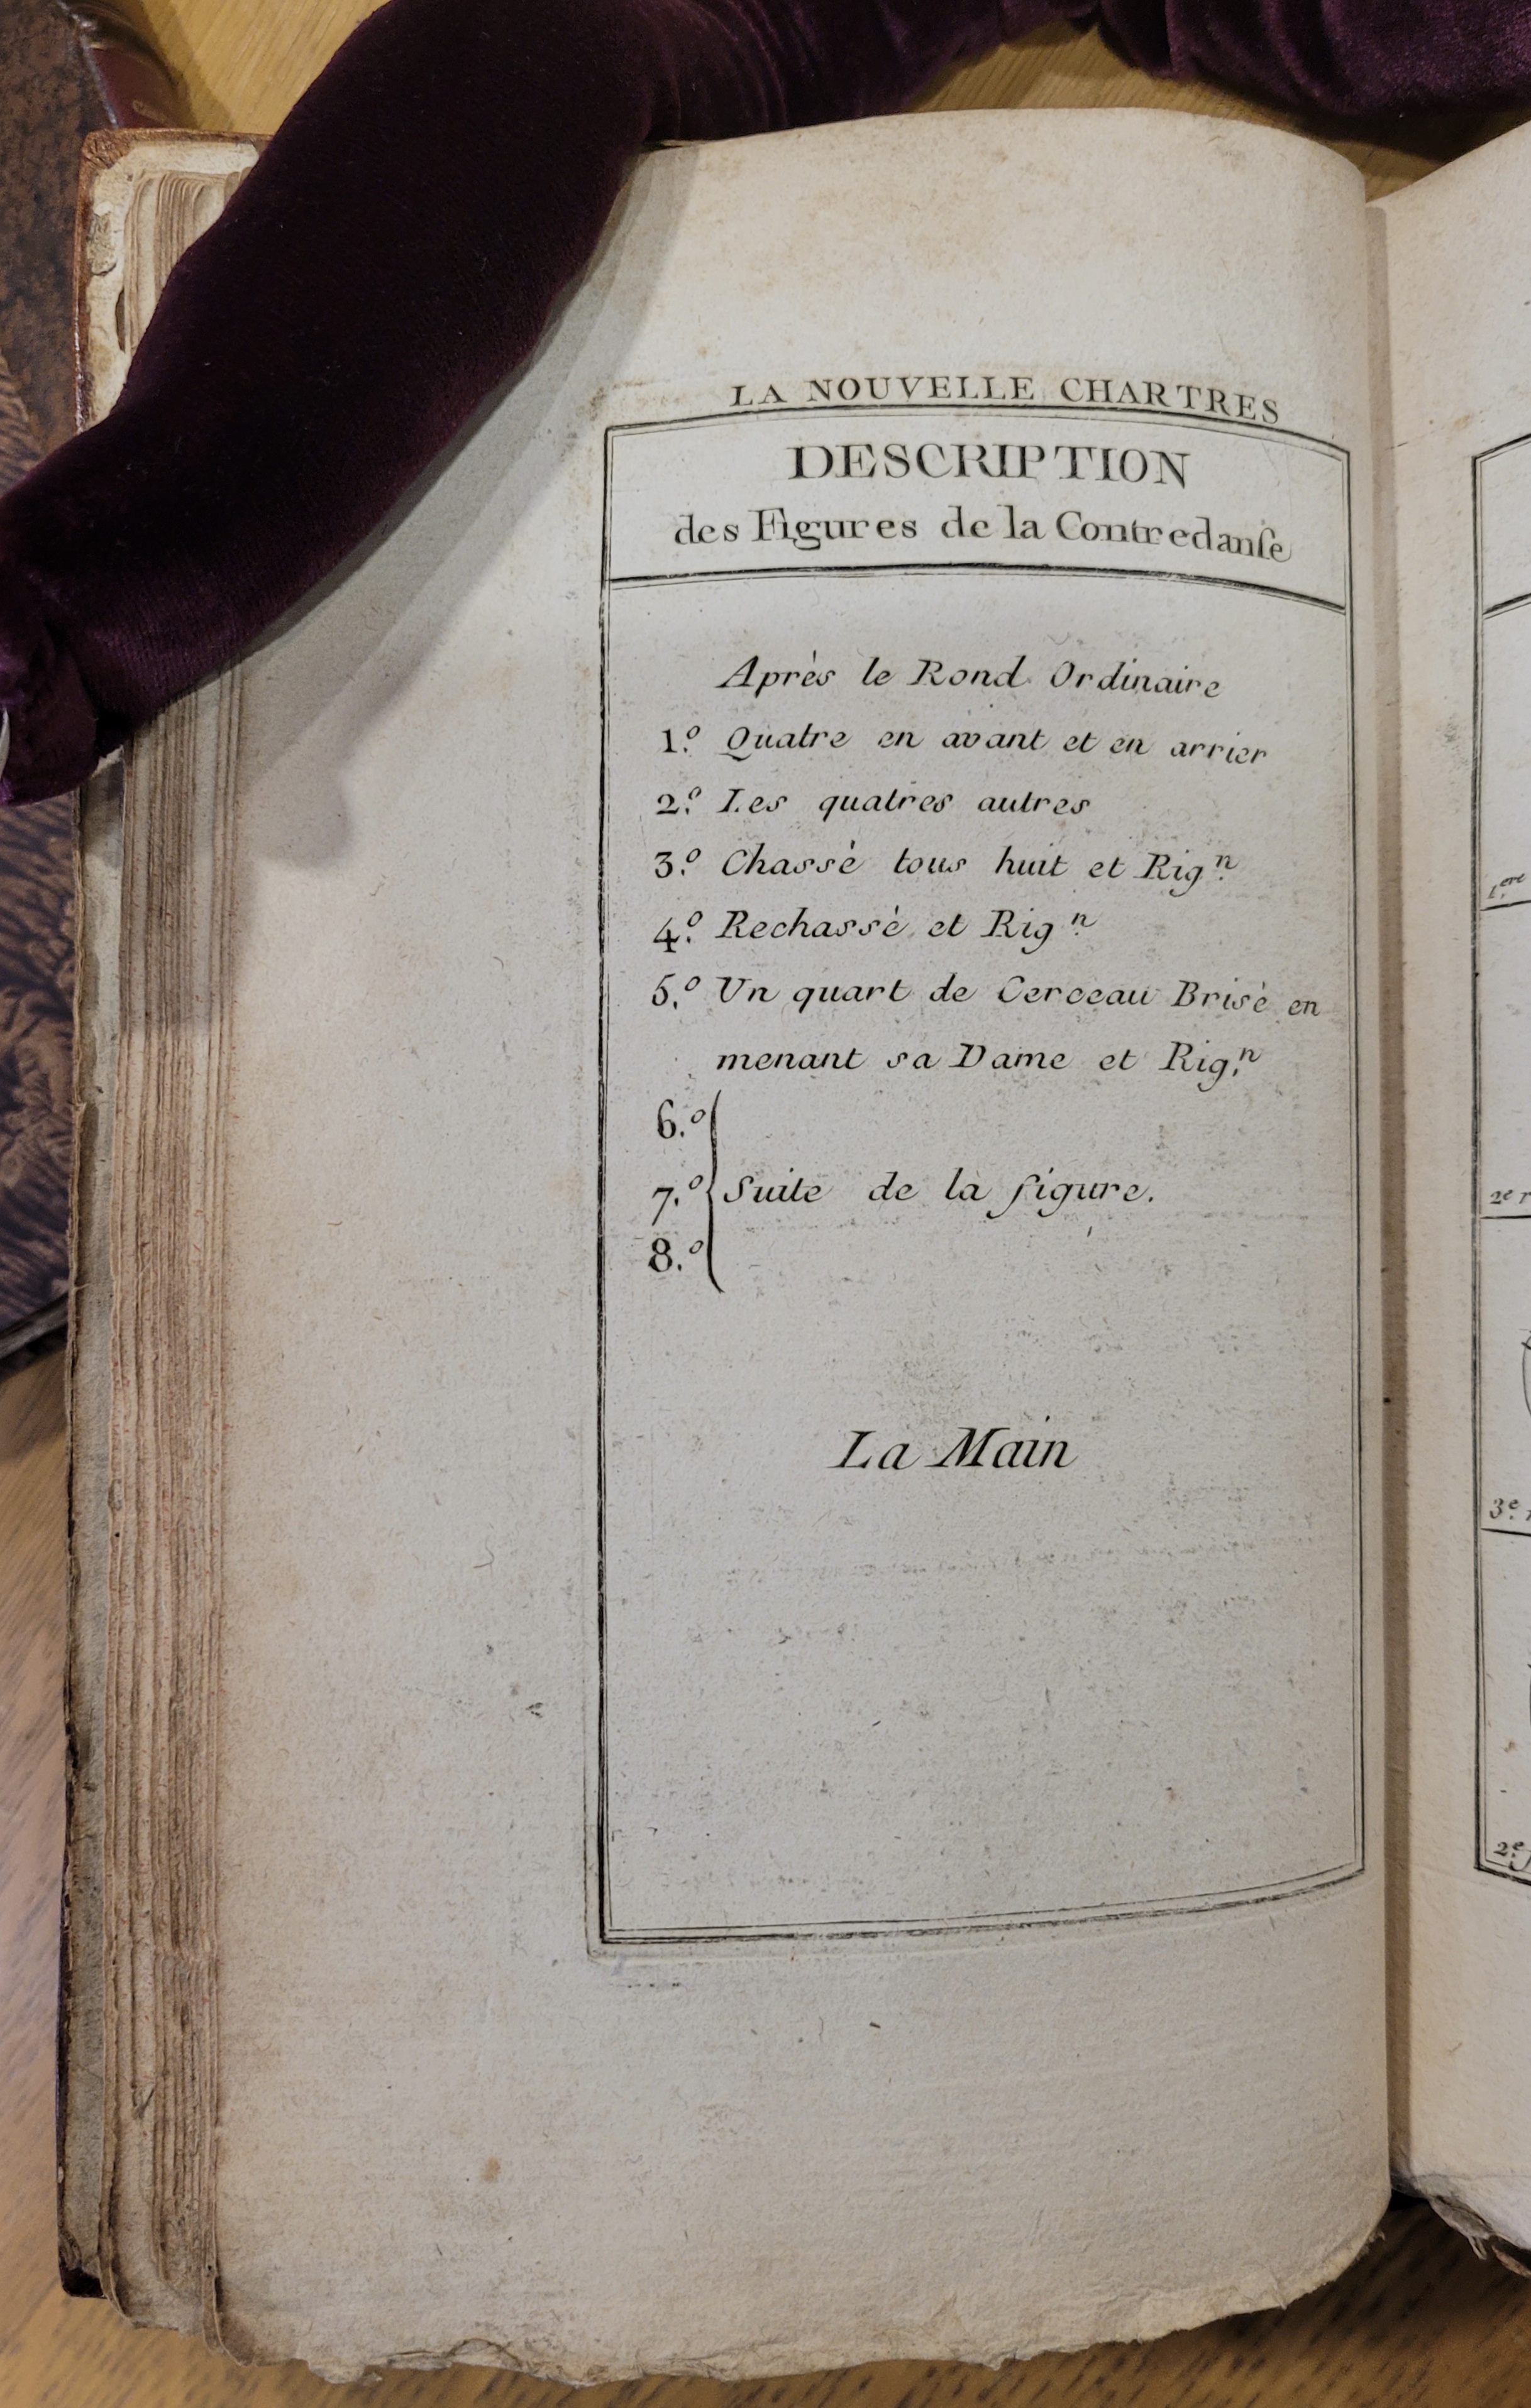 LA NOUVELLE CHARTRES
DESCRIPTION
des Figures de la Contredanſe
Après le Rond Ordinaire
1.º Quatre en avant et en arrier
2.º Les quatres autres
3.º Chassé tous huit et Rig.ⁿ
4.º Rechassé et Rig.ⁿ
5.º Un quart de Cerceau Brisé en
menant sa Dame et Rig.ⁿ
6.º
7.º Suite de la figure.
8.º
La Main
1.ere
2e
3.e
2.e